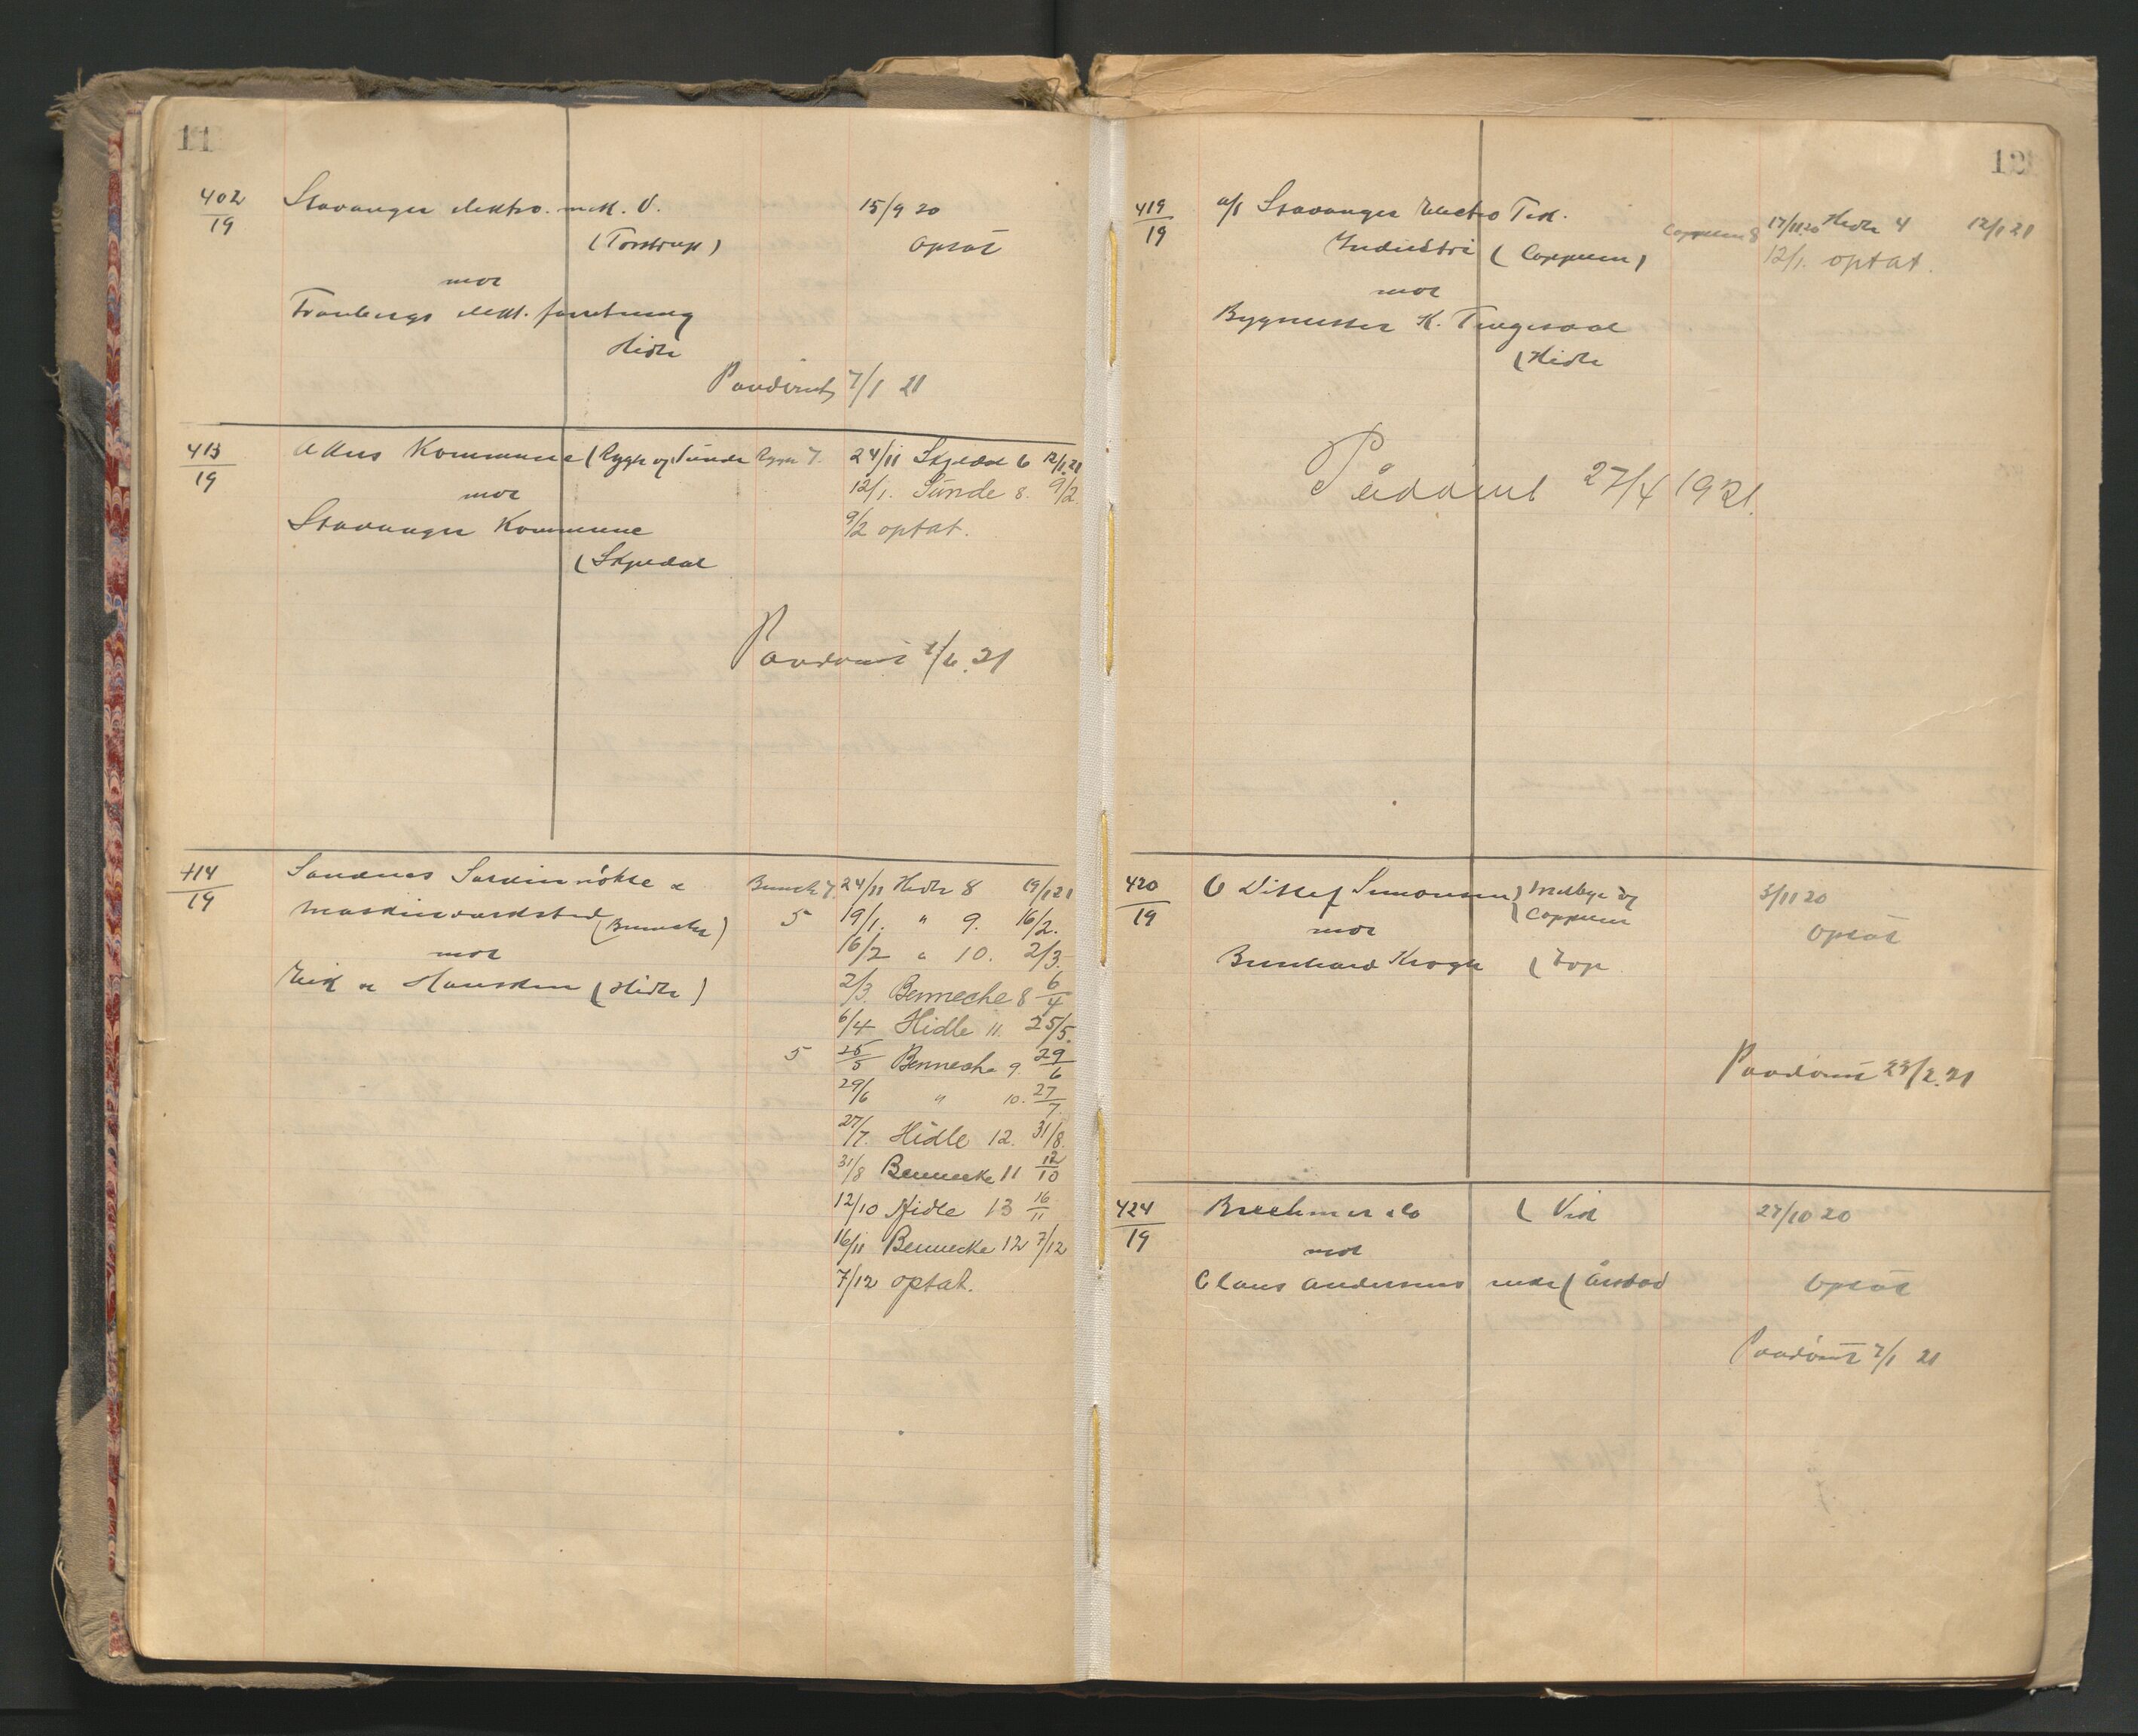 11
402/19 Stavanger elektro. mek. V. 15/9 20
(Torstrup) optat
mot
Tranbergs elekt. forretning
Hidle
Paadömt 7/1 21
413/19 Kommune (Rygh og Sunde Rygh 7. 24/11 Skjedal 6 12/1.21
mot 12/1. Sunde 8. 9/2.
Stavanger Kommune 9/2 optat.
(Skjedal
Paadömt 1/6.21
414/19 Sandnes & Bennech 7. 24/11 Hidle 8 19/1 21
Maskinverksted (Bennecke) 5 19/1. " 9. 16/2.
mot 16/2 " 10. 2/3.
Eik & Hausken (Hidle) 2/3. Benneche 8 6/4
6/4 Hidle 11. 25/5.
5 25/5 Benneche 9. 29/6
29/6 " 10. 27/7.
27/7. Hidle 12. 31/8.
31/8 Bennecke 11 12/10
12/10 Hidle 13 16/11
16/11 Bennecke 12 7/12
7/12 optat.
12
419/19 a/s Stavanger Electro Tek. Coppeun 8 17/11.20 Hidle 4 12/1 21
Industri (Coppeun) 12/1. optat.
mot
Bygmester K. Tengesdal
(Hidle
Pådömt 27/4 1921.
420/19 O Ditlef Simonsen) Melbye og 3/11 20
mot (Coppeun optat
Bernhard Krogh (
Paadömt 23/2.21
424/19 Brechmer & Co ( Vik 27/10 20
mot
Claus Andersens enke (Årstad optat
Paadömt 7/1 21